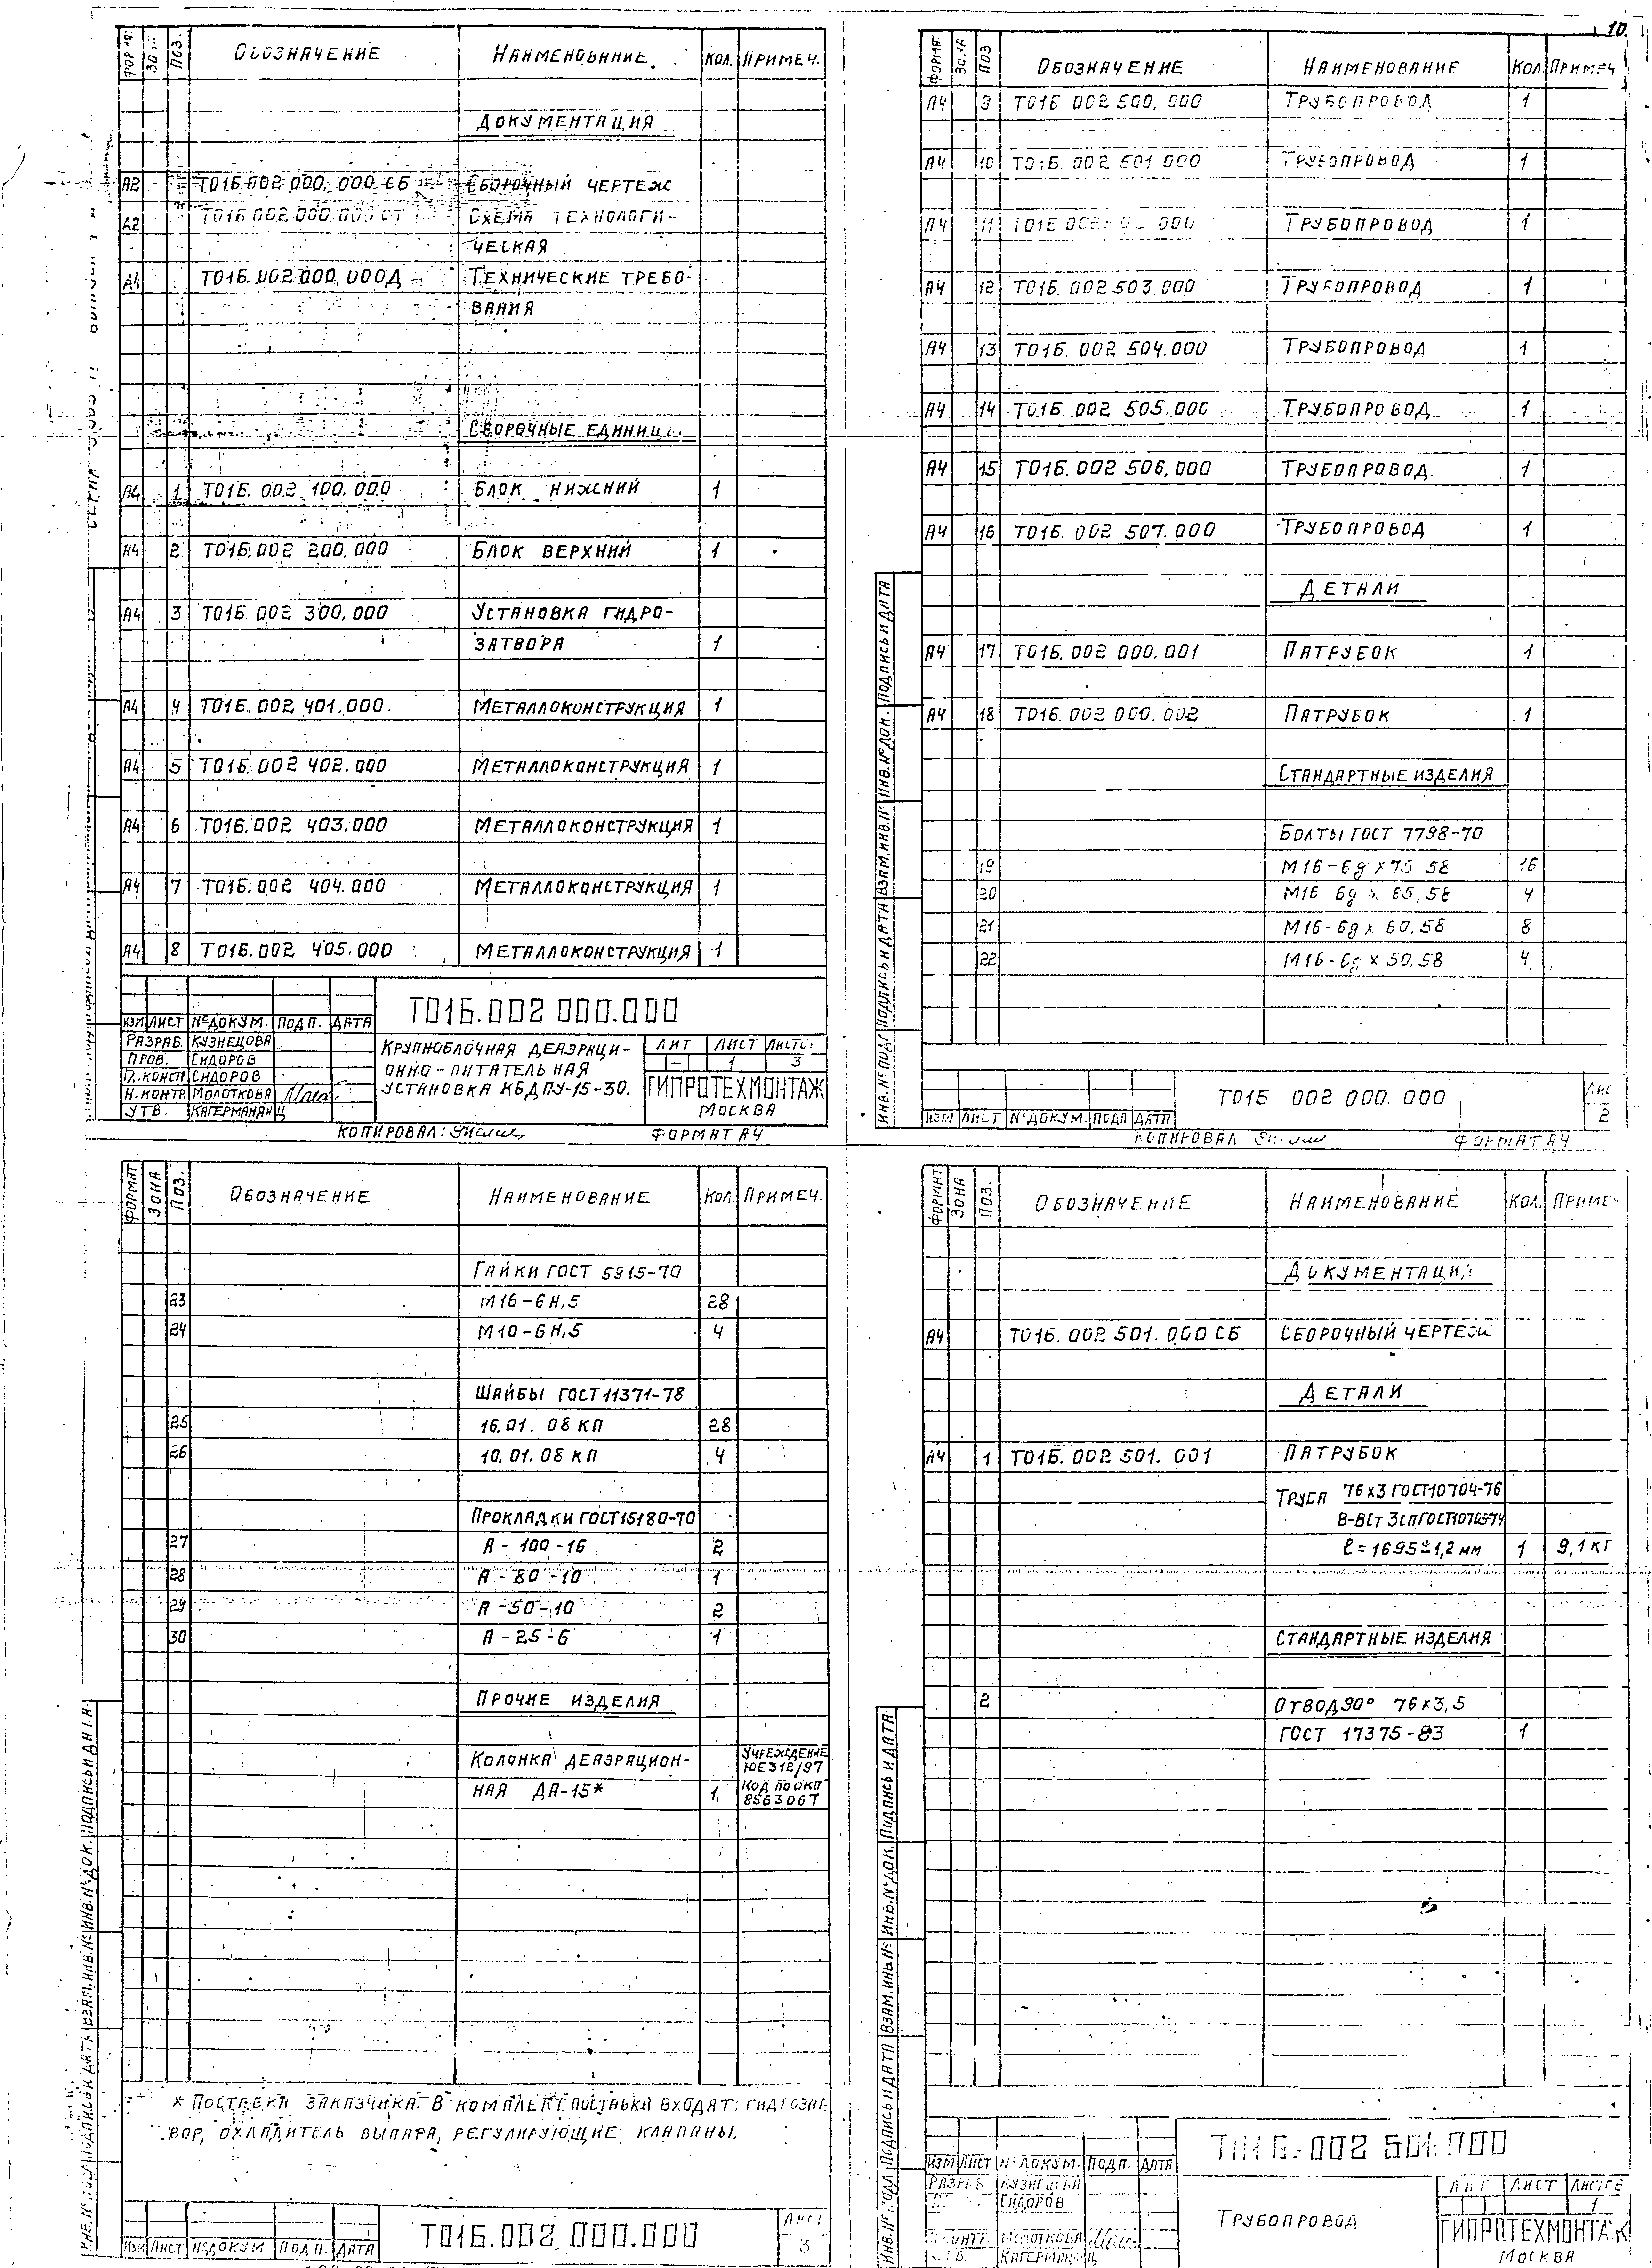 10
ФОРМАТ ЗОНА ПОЗ. ОБОЗНАЧЕНИЕ НАИМЕНОВАНИЕ КОЛ. ПРИМЕЧ.
ДОКУМЕНТАЦИЯ
А2 Т01Б.002 000.000 СБ СБОРОЧНЫЙ ЧЕРТЕЖ
А2 Т01Б.002.000.000 СТ СХЕМА ТЕХНОЛОГИ-
ЧЕСКАЯ
А4 Т01Б.002 000.000Д ТЕХНИЧЕСКИЕ ТРЕБО-
ВАНИЯ
СБОРОЧНЫЕ ЕДИНИЦЫ
А4 1 Т01Б.002 100.000 БЛОК НИЖНИЙ 1
А4 2 Т01Б.002 200.000 БЛОК ВЕРХНИЙ 1
А4 3 Т01Б.002 300.000 УСТАНОВКА ГИДРО-
ЗАТВОРА 1
А4 4 Т01Б.002 401.000 МЕТАЛЛОКОНСТРУКЦИЯ 1
А4 5 Т01Б.002 402.000 МЕТАЛЛОКОНСТРУКЦИЯ 1
А4 6 Т01Б.002 403.000 МЕТАЛЛОКОНСТРУКЦИЯ 1
А4 7 Т01Б.002 404.000 МЕТАЛЛОКОНСТРУКЦИЯ 1
А4 8 Т01Б.002 405.000 МЕТАЛЛОКОНСТРУКЦИЯ 1
Т01Б.002 000.000
ИЗМ ЛИСТ №ДОКУМ. ПОДП. ДАТА
РАЗРАБ. КУЗНЕЦОВА
ПРОВ. СИДОРОВ
ГЛ.КОНСТР СИДОРОВ
Н.КОНТР. МОЛОТКОВА
УТВ. КАГЕРМАНЯН
КРУПНОБЛОЧНАЯ ДЕАЭРАЦИ-
ОННО-ПИТАТЕЛЬНАЯ
УСТАНОВКА КБДПУ-15-30.
ЛИТ ЛИСТ ЛИСТОВ
- 1 3
ГИПРОТЕХМОНТАЖ
МОСКВА
КОПИРОВАЛ: ФОРМАТ А4
ФОРМАТ ЗОНА ПОЗ ОБОЗНАЧЕНИЕ НАИМЕНОВАНИЕ КОЛ. ПРИМЕЧ
А4 9 Т01Б 002 500.000 ТРУБОПРОВОД 1
А4 10 Т01Б.002 501 000 ТРУБОПРОВОД 1
А4 11 Т01Б.002 000 ТРУБОПРОВОД 1
А4 12 Т01Б.002 503.000 ТРУБОПРОВОД 1
А4 13 Т01Б.002 504.000 ТРУБОПРОВОД 1
А4 14 Т01Б.002 505.000 ТРУБОПРОВОД 1
А4 15 Т01Б.002 506.000 ТРУБОПРОВОД. 1
А4 16 Т01Б.002 507.000 ТРУБОПРОВОД 1
ДЕТАЛИ
А4 17 Т01Б.002 000.001 ПАТРУБОК 1
А4 18 Т01Б.002 000.002 ПАТРУБОК 1
СТАНДАРТНЫЕ ИЗДЕЛИЯ
БОЛТЫ ГОСТ 7798-70
19 М16-6g x 75 58 16
20 М16 6g x 65.58 4
21 М16-6g x 60.58 8
22 М16-6g x 50.58 4
ИНВ.№ПОДЛ ПОДПИСЬ И ДАТА ВЗАМ.ИНВ.№ ИНВ.№ДОК. ПОДПИСЬ И ДАТА
ИЗМ ЛИСТ №ДОКУМ. ПОДП ДАТА
Т01Б 002 000.000
ЛИС
2
КОПИРОВАЛ ФОРМАТ А4
ФОРМАТ ЗОНА ПОЗ. ОБОЗНАЧЕНИЕ НАИМЕНОВАНИЕ КОЛ. ПРИМЕЧ.
ГАЙКИ ГОСТ 5915-70
23 М16-6Н,5 28
24 М10-6Н,5 4
ШАЙБЫ ГОСТ 11371-78
25 16.01.08 КП 28
26 10.01.08 КП 4
ПРОКЛАДКИ ГОСТ 15180-70
27 А-100-16 2
28 А-80-10 1
29 А-50-10 2
30 А-25-6 1
ПРОЧИЕ ИЗДЕЛИЯ
КОЛОНКА ДЕАЭРАЦИОН-
НАЯ ДА-15* 1
УЧРЕЖДЕНИЕ
ЮЕ312/97
КОД ПО ОКПО
8563067
* ПОСТАВКА ЗАКАЗЧИКА. В КОМПЛЕКТ ПОСТАВКИ ВХОДЯТ: ГИДРОЗАТ-
ВОР, ОХЛАДИТЕЛЬ ВЫПАРА, РЕГУЛИРУЮЩИЕ КЛАПАНЫ.
ИНВ.№ПОДЛ ПОДПИСЬ И ДАТА ВЗАМ.ИНВ.№ ИНВ.№ДОК. ПОДПИСЬ И ДАТА
ИЗМ ЛИСТ №ДОКУМ ПОДП. ДАТА
Т01Б.002 000.000
ЛИСТ
3
ФОРМАТ ЗОНА ПОЗ. ОБОЗНАЧЕНИЕ НАИМЕНОВАНИЕ КОЛ. ПРИМЕЧ
ДОКУМЕНТАЦИЯ
А4 Т01Б.002 501.000 СБ СБОРОЧНЫЙ ЧЕРТЕЖ
ДЕТАЛИ
А4 1 Т01Б.002 501.001 ПАТРУБОК
ТРУБА 76х3 ГОСТ10704-76
В-ВСт 3сп ГОСТ10705-74
ℓ=1695±1,2 мм 1 9,1 кг
СТАНДАРТНЫЕ ИЗДЕЛИЯ
2 ОТВОД 90° 76х3,5
ГОСТ 17375-83 1
ИНВ.№ПОДЛ ПОДПИСЬ И ДАТА ВЗАМ.ИНВ.№ ИНВ.№ДОК. ПОДПИСЬ И ДАТА
Т01Б.002 501.000
ИЗМ ЛИСТ №ДОКУМ. ПОДП. ДАТА
РАЗРАБ КУЗНЕЦОВА
СИДОРОВ
Н.КОНТР. МОЛОТКОВА
УТВ. КАГЕРМАНЯН
ТРУБОПРОВОД
ЛИТ ЛИСТ ЛИСТОВ
1
ГИПРОТЕХМОНТАЖ
МОСКВА